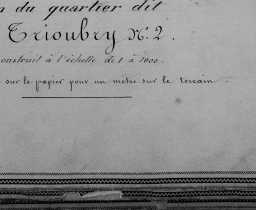 du quartier dit
Trioubry N.º 2.
construit à l'échelle de 1 à 1000.
sur le papier pour un mètre sur le terrain